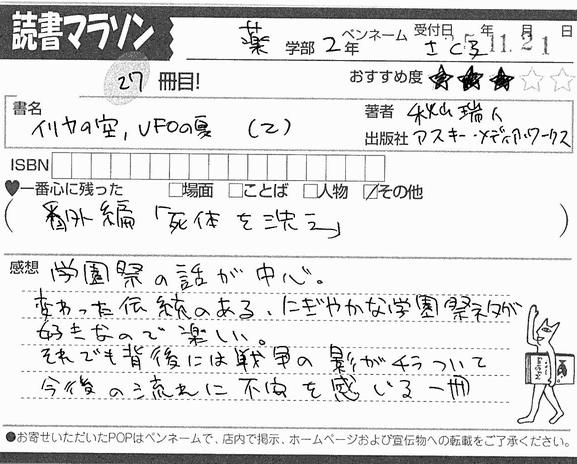 読書マラソン
薬 学部 2年 ペンネーム さく 受付日 年 月 日 11.21
27 冊目! おすすめ度 ★★★☆☆
書名 イリヤの空,UFOの夏 (2)
著者 秋山瑞人
出版社 アスキー・メディアワークス
ISBN
♥一番心に残った □場面 □ことば □人物 ☑その他
(番外編「死体を洗え」)
感想 学園祭の話が中心。
変わった伝統のある、にぎやかな学園祭ネタが
好きなので楽しい。
それでも背後には戦争の影がチラついて
今後の流れに不安を感じる一冊
●お寄せいただいたPOPはペンネームで、店内で掲示、ホームページおよび宣伝物への転載をご了承ください。